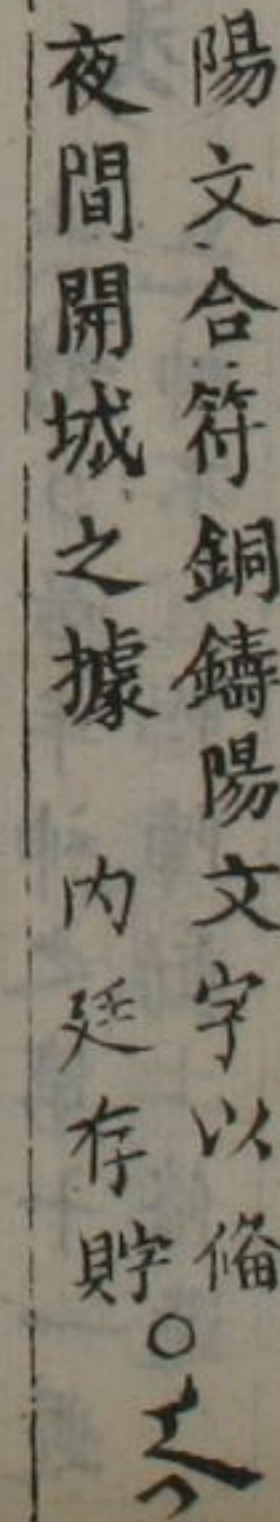 陽文合符銅鑄陽文字以俻
夜間開城之據　内廷存貯○